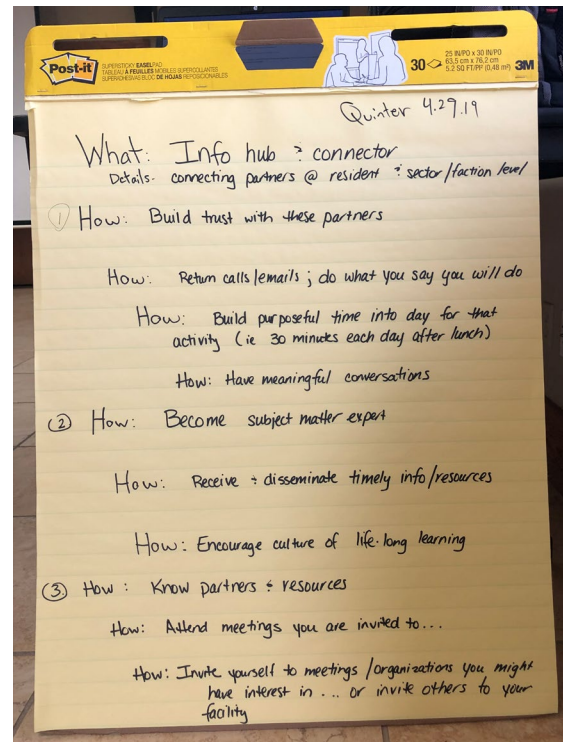 Post-it
SUPERSTICKY EASEL PAD
TABLEAU À FEUILLES MOBILES SUPERCOLLANTES
SUPERADHESIVAS BLOC DE HOJAS REPOSICIONABLES
30
25 IN/PO x 30 IN/PO
63,5 cm x 76,2 cm
5.2 SQ FT/PI² (0,48 m²)
3M
Quinter 4.29.19
What: Info hub & connector
Details- connecting partners @ resident & sector/faction level
① How: Build trust with these partners
How: Return calls/emails ; do what you say you will do
How: Build purposeful time into day for that
activity (ie 30 minutes each day after lunch)
How: Have meaningful conversations
② How: Become subject matter expert
How: Receive & disseminate timely info/resources
How: Encourage culture of life-long learning
③ How: Know partners & resources
How: Attend meetings you are invited to...
How: Invite yourself to meetings/organizations you might
have interest in ... or invite others to your
facility